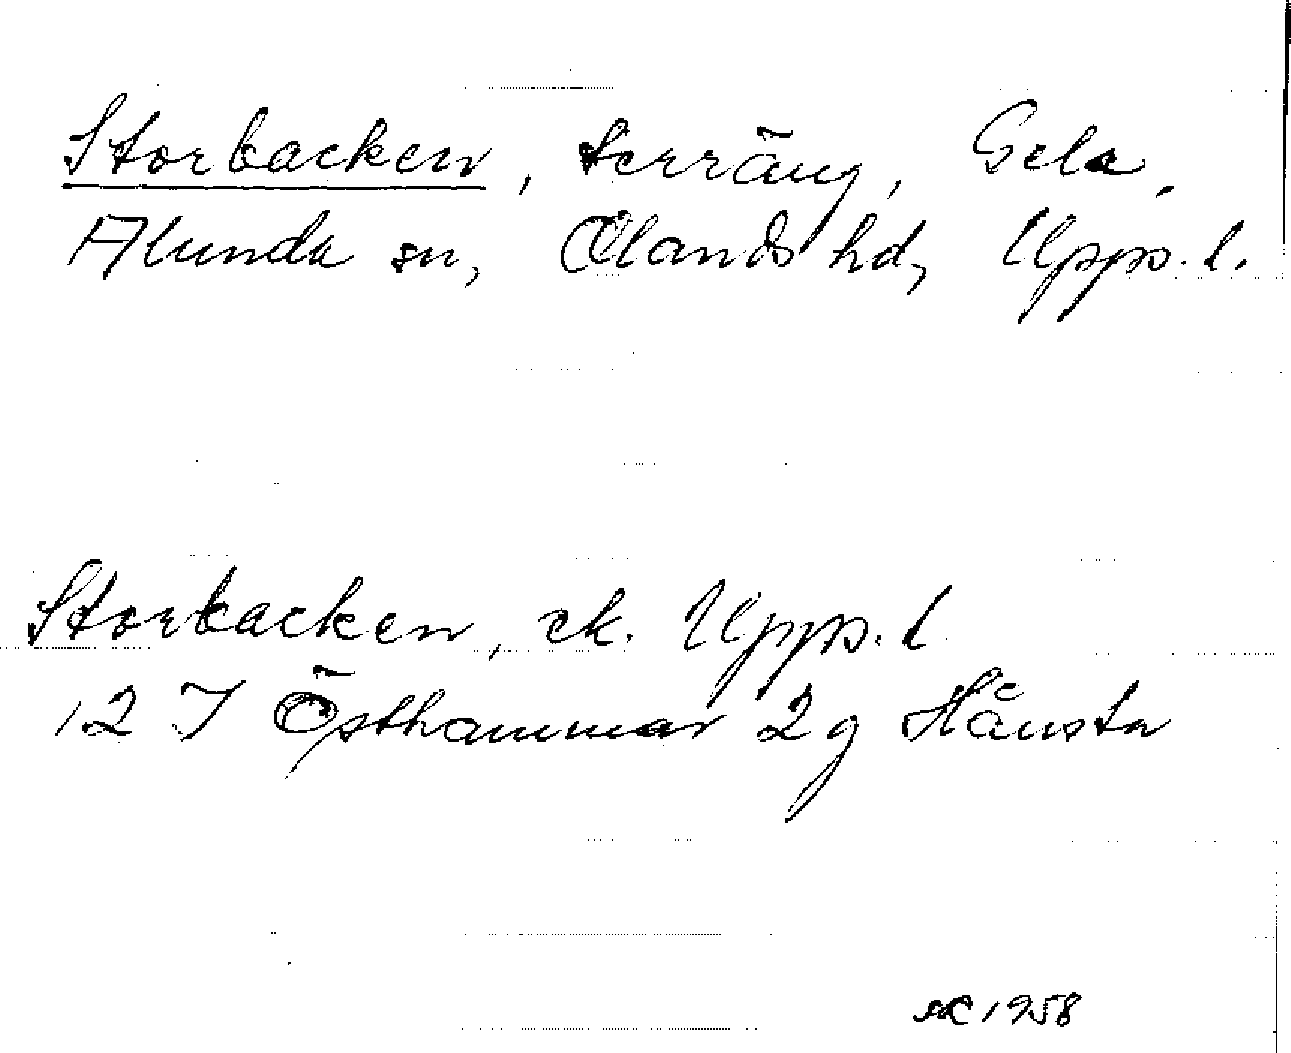 Storbacken, terräng, Gela,
Alunda sn, Olands hd, Upps. l.
Storbacken, ek. Upps. l
12 I Östhammar 2g Hånsta
1958